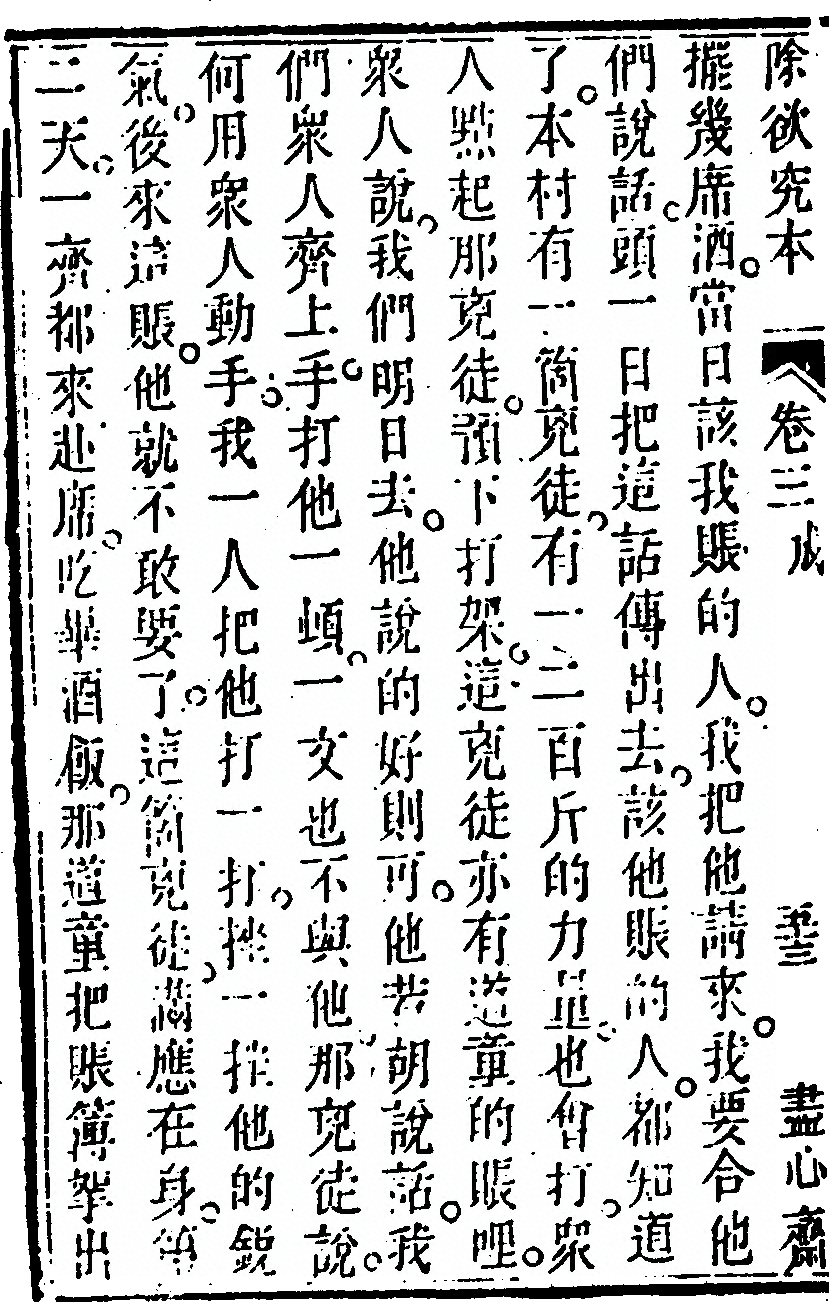 除欲究本 卷三 戒 盡心齋
擺幾席酒。當日該我賬的人。我把他請來。我要合他
們說話。頭一日把這話傳出去。該他賬的人。都知道
了。本村有一箇兇徒。有一二百斤的力量。也會打。眾
人惹起那兇徒。預下打架。這兇徒亦有道童的賬哩。
眾人說。我們明日去。他說的好則可。他若胡說話。我
們眾人齊上手。打他一頓。一文也不與他。那兇徒說。
何用眾人動手。我一人把他打一打。挫一挫他的銳
氣。後來這賬。他就不敢要了。這箇兇徒。滿應在身。第
二天。一齊都來赴席。吃畢酒飯。那道童把賬簿拏出